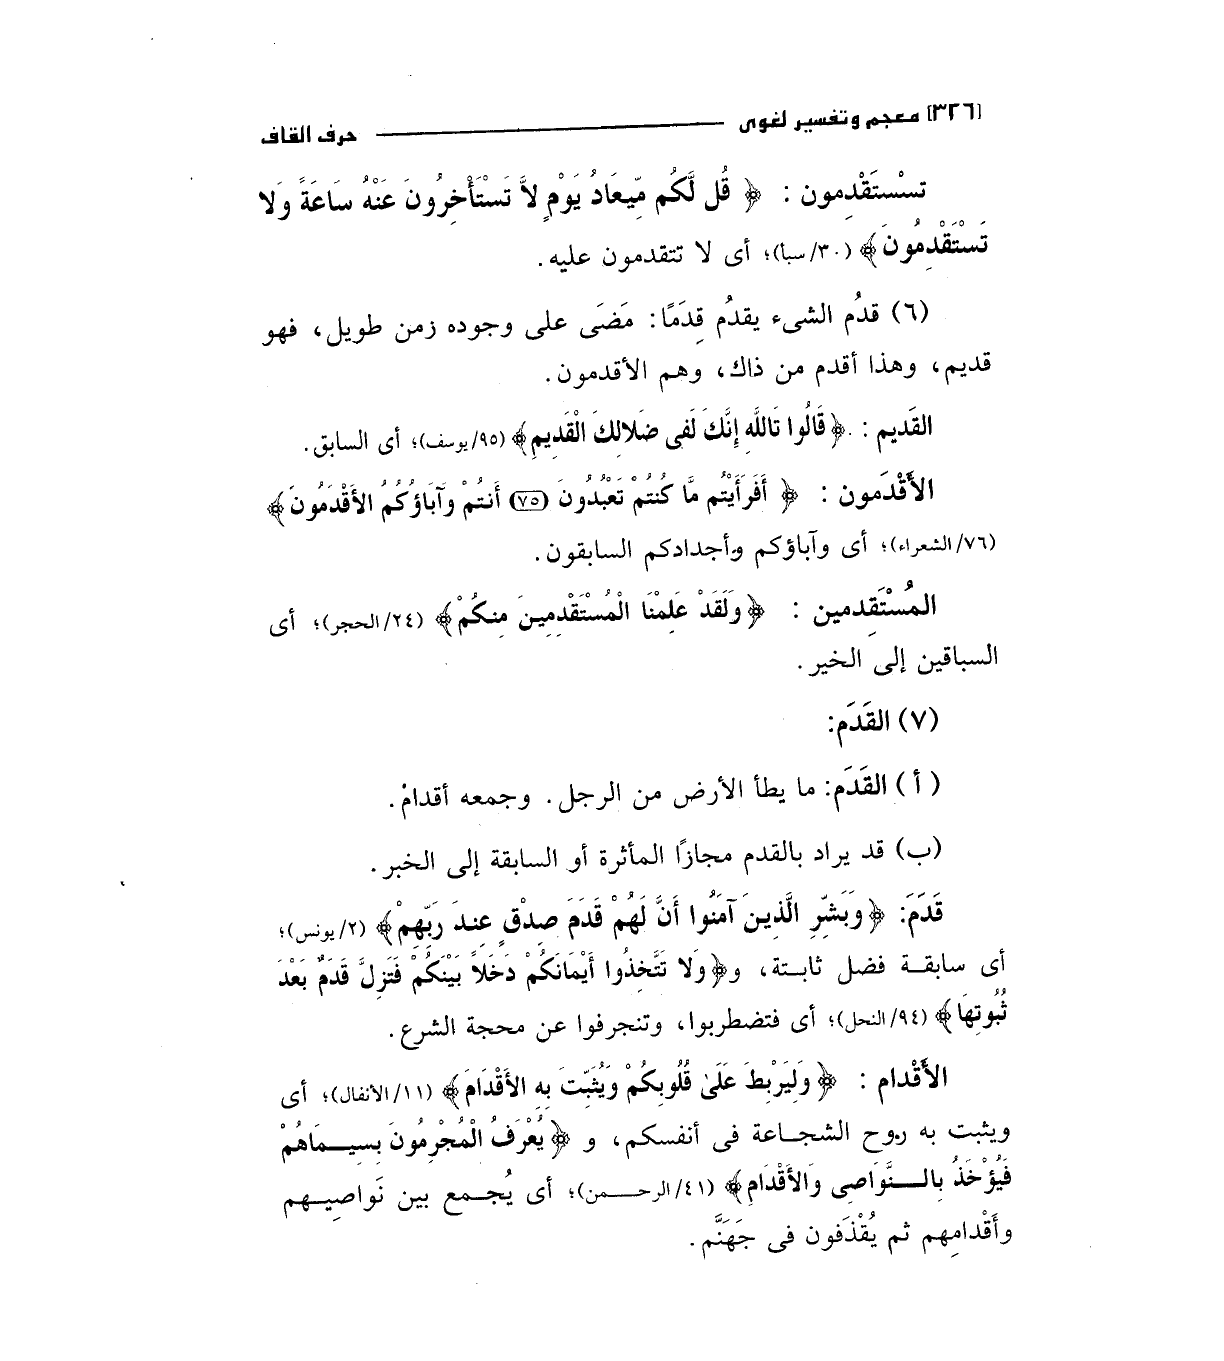 [٣٢٦] معجم وتفسير لغوى ــــــــــ حرف القاف
تسْتَقْدِمون : ﴿ قُل لَّكُم مِّيعَادُ يَوْمٍ لاَّ تَسْتَأْخِرُونَ عَنْهُ سَاعَةً وَلا
تَسْتَقْدِمُونَ﴾ (٣٠/سبأ)؛ أى لا تتقدمون عليه.
(٦) قدُم الشىء يقدُم قِدَمًا: مَضَى على وجوده زمن طويل، فهو
قديم، وهذا أقدم من ذاك، وهم الأقدمون.
القَديم : ﴿قَالُوا تَاللَّهِ إِنَّكَ لَفِى ضَلالِكَ الْقَدِيمِ﴾ (٩٥/يوسف)؛ أى السابق.
الأَقْدَمون : ﴿ أَفَرَأَيْتُم مَّا كُنتُمْ تَعْبُدُونَ (٧٥) أَنتُمْ وَآبَاؤُكُمُ الأَقْدَمُونَ﴾
(٧٦/الشعراء)؛ أى وآباؤكم وأجدادكم السابقون.
المُسْتَقدمين : ﴿وَلَقَدْ عَلِمْنَا الْمُسْتَقْدِمِينَ مِنكُمْ﴾ (٢٤/الحجر)؛ أى
السباقين إلى الخير.
(٧) القَدَم:
(أ) القَدَم: ما يطأ الأرض من الرجل. وجمعه أقدامٌ.
(ب) قد يراد بالقدم مجازًا المأثرة أو السابقة إلى الخبر.
قَدَمَ: ﴿وَبَشِّرِ الَّذِينَ آمَنُوا أَنَّ لَهُمْ قَدَمَ صِدْقٍ عِندَ رَبِّهِمْ﴾ (٢/يونس)؛
أى سابقة فضل ثابتة، و﴿وَلا تَتَّخِذُوا أَيْمَانَكُمْ دَخَلاً بَيْنَكُمْ فَتَزِلَّ قَدَمٌ بَعْدَ
ثُبُوتِهَا﴾ (٩٤/النحل)؛ أى فتضطربوا، وتنجرفوا عن محجة الشرع.
الأَقْدام : ﴿وَلِيَرْبِطَ عَلَىٰ قُلُوبِكُمْ وَيُثَبِّتَ بِهِ الأَقْدَامَ﴾ (١١/الأنفال)؛ أى
ويثبت به روح الشجاعة فى أنفسكم، و ﴿يُعْرَفُ الْمُجْرِمُونَ بِسِيمَاهُمْ
فَيُؤْخَذُ بِالنَّوَاصِى وَالأَقْدَامِ﴾ (٤١/الرحمن)؛ أى يُجمع بين نَواصِيهم
وأَقْدامِهم ثم يُقْذَفون فى جَهَنَّم.